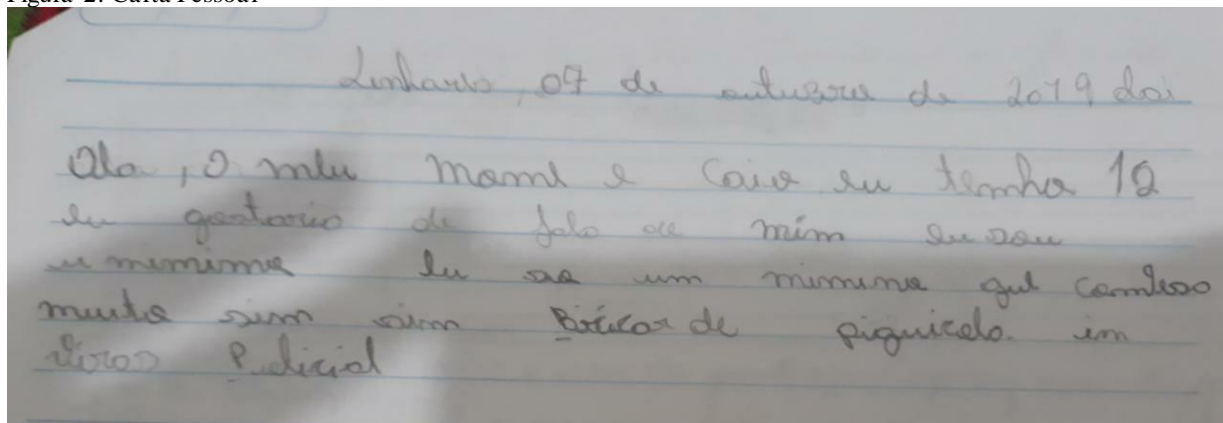 Figura 2: Carta Pessoal
Linhares, 07 de outubro de 2019 doi
Ola, O meu mome e Caio eu temho 12
eu gostario de falo de mim eu sou
u menimo eu so um menimo que comverso
muito sim sim Bricar de piguicelo. im
Policial